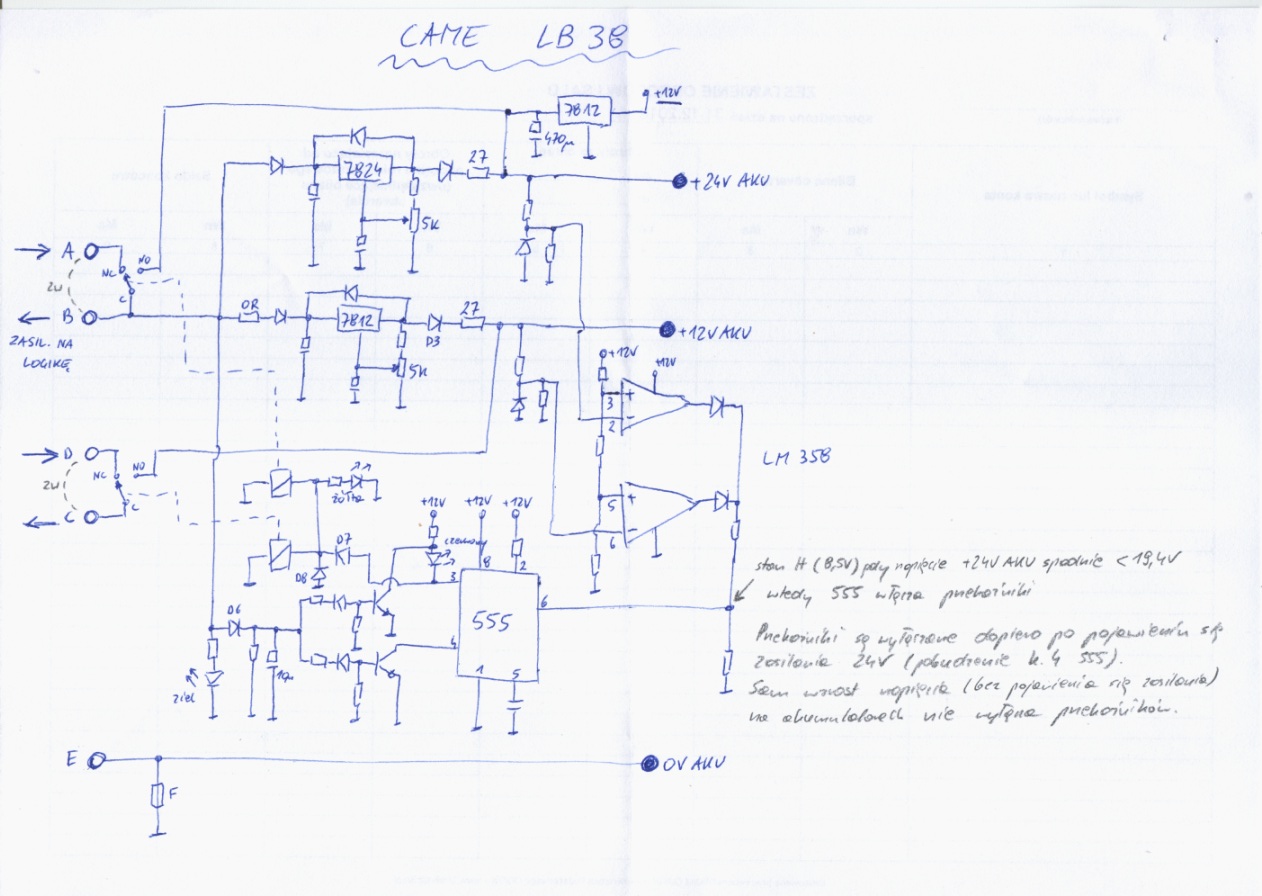 CAME LB38
7812
+12V
470µ
7824
27
+24V AKU
5K
A
NC
NO
C
2W
B
0R
7812
27
D3
+12V AKU
ZASIL. NA
LOGIKĘ
5K
+12V
+12V
3
+
2
-
LM 358
D
NC
NO
C
2W
C
żółta
+12V
+12V
+12V
5
+
6
-
D7
czerwony
8
2
D8
3
555
6
4
1
5
D6
10µ
ziel
stan H (8,5V) gdy napięcie +24V AKU spadnie < 19,4V
wtedy 555 włącza przekaźniki
Przekaźniki są wyłączane dopiero po pojawieniu się
zasilania 24V (pobudzenie n. 4 555).
Sam wzrost napięcia (bez pojawienia się zasilania)
na akumulatorach nie wyłącza przekaźników.
E
0V AKU
F